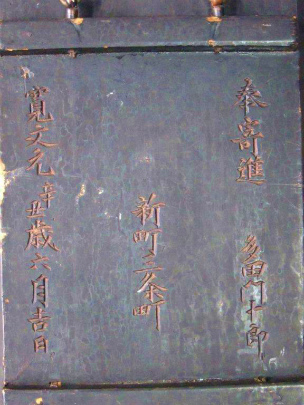 奉寄進 多田門十郎
新町三条町
寛文元辛丑歳六月吉日